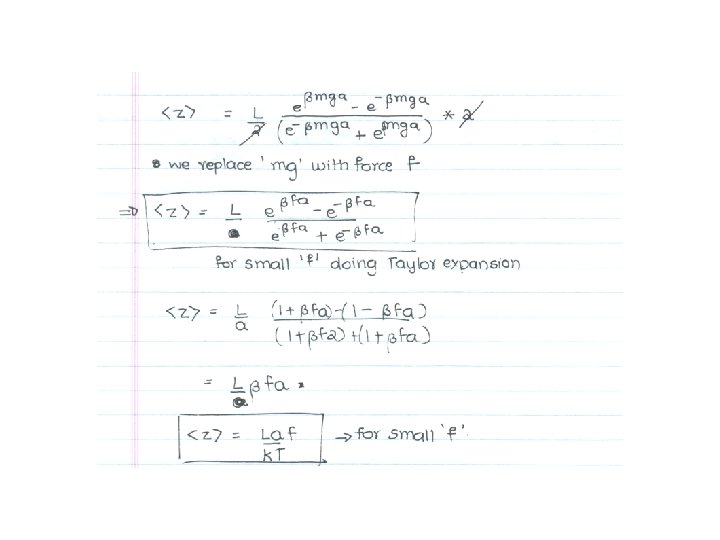 <z> = L/2 (e^βmga - e^-βmga)/(e^-βmga + e^βmga) * 2
• we replace 'mg' with force f
⇒ <z> = L (e^βfa - e^-βfa)/(e^βfa + e^-βfa)
for small 'f' doing Taylor expansion
<z> = L/a ((1+βfa)-(1-βfa))/((1+βfa)+(1+βfa))
= Lβfa.
<z> = Laf/kT → for small 'f'.